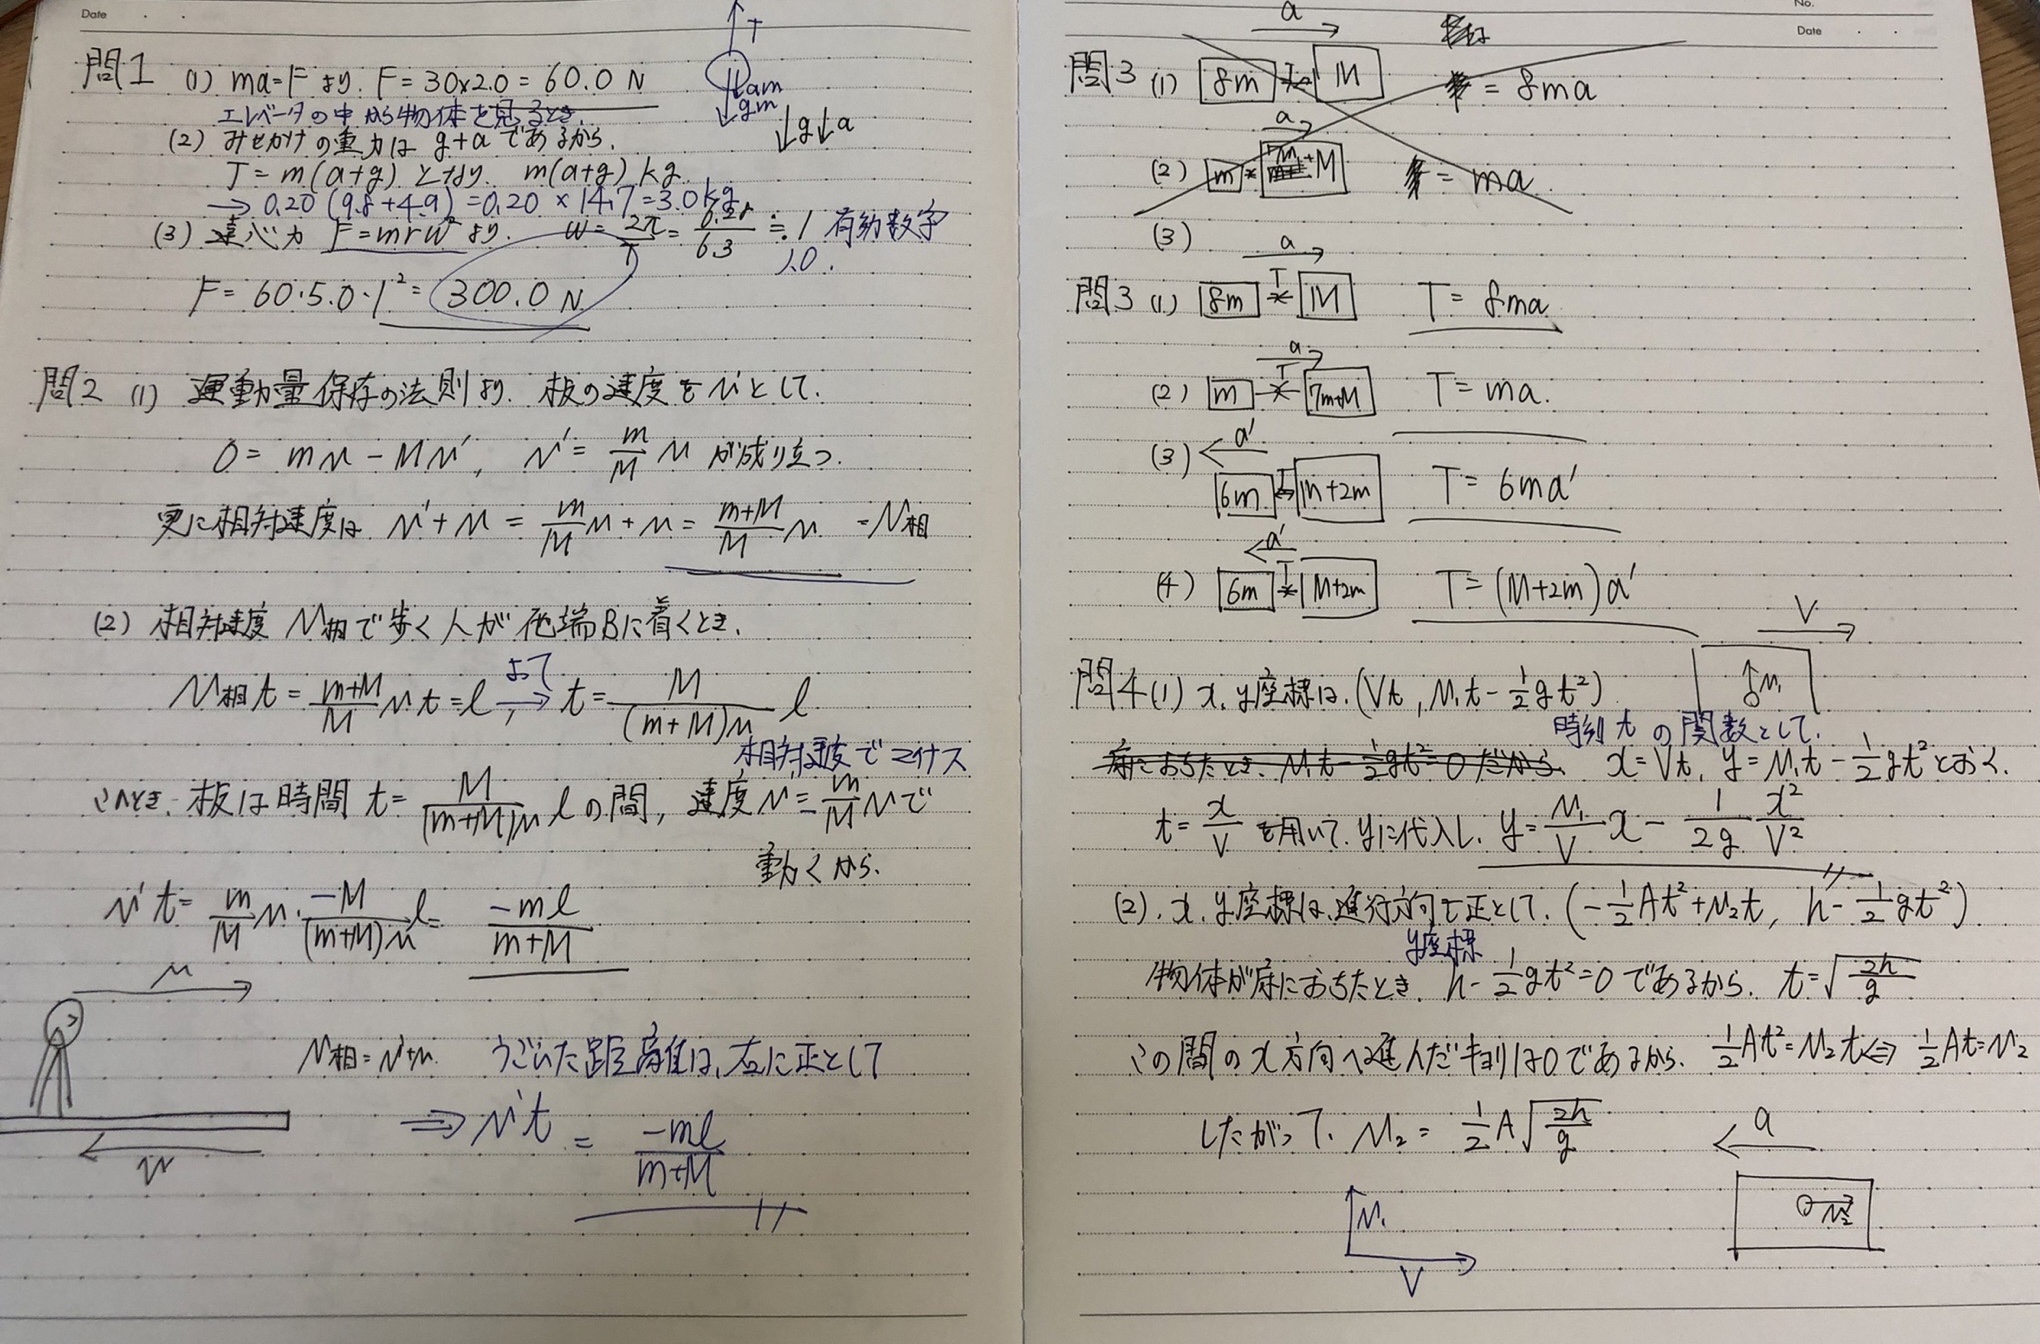 Date
問1 (1) ma=Fより. F=30×2.0=60.0 N
エレベータの中から物体を見るとき.
(2) みせかけの重力は g+a であるから.
T=m(a+g) となり. m(a+g) kg.
→ 0.20 (9.8+4.9)=0.20×14.7=3.0kg
(3) 遠心力 F=mrw² より. w=2π/T=6.28/6.3≒1 有効数字
1.0.
F=60・5.0・1²=300.0 N
T
am
gm
↓g↓a
問2 (1) 運動量保存の法則より. 板の速度をv'として.
0=mv-Mv', v'=m/M v が成り立つ.
更に相対速度は v'+v=m/M v+v=(m+M)/M v =v相
(2) 相対速度 v相で歩く人が他端Bに着くとき.
v相t=(m+M)/M v t=l, よって→ t=M/((m+M)v) l
相対速度でマイナス
このとき. 板は時間 t=M/((m+M)v) l の間, 速度v'=m/M vで
動くから.
v't=m/M v・-M/((m+M)v) l=-ml/(m+M)
v
v相=v'+v. うごいた距離は, 右に正として
⇒ v't=-ml/(m+M)
v'
No.
Date
a
問3 (1) 8m T M = 8ma
a
(2) m 7m+M = ma
(3)
a
問3 (1) 8m T M T=8ma
a
(2) m T 7m+M T=ma.
a'
(3) 6m T M+2m T=6ma'
a'
(4) 6m T M+2m T=(M+2m)a'
V
v₁
問4 (1) x, y座標は. (Vt, v₁t-1/2gt²)
時刻tの関数として.
床におちたとき. v₁t-1/2gt²=0だから. x=Vt, y=v₁t-1/2gt²とおく.
t=x/V を用いて. yに代入し. y=v₁/V x-1/2g x²/V²
(2). x. y座標は, 進行方向を正として. (-1/2At²+v₂t, h-1/2gt²)
y座標
物体が床におちたとき. h-1/2gt²=0であるから. t=√(2h/g)
この間のx方向へ進んだキョリは0であるから. 1/2At²=v₂t⇔1/2At=v₂
したがって. v₂=1/2A√(2h/g)
a
v₂
v₁
V